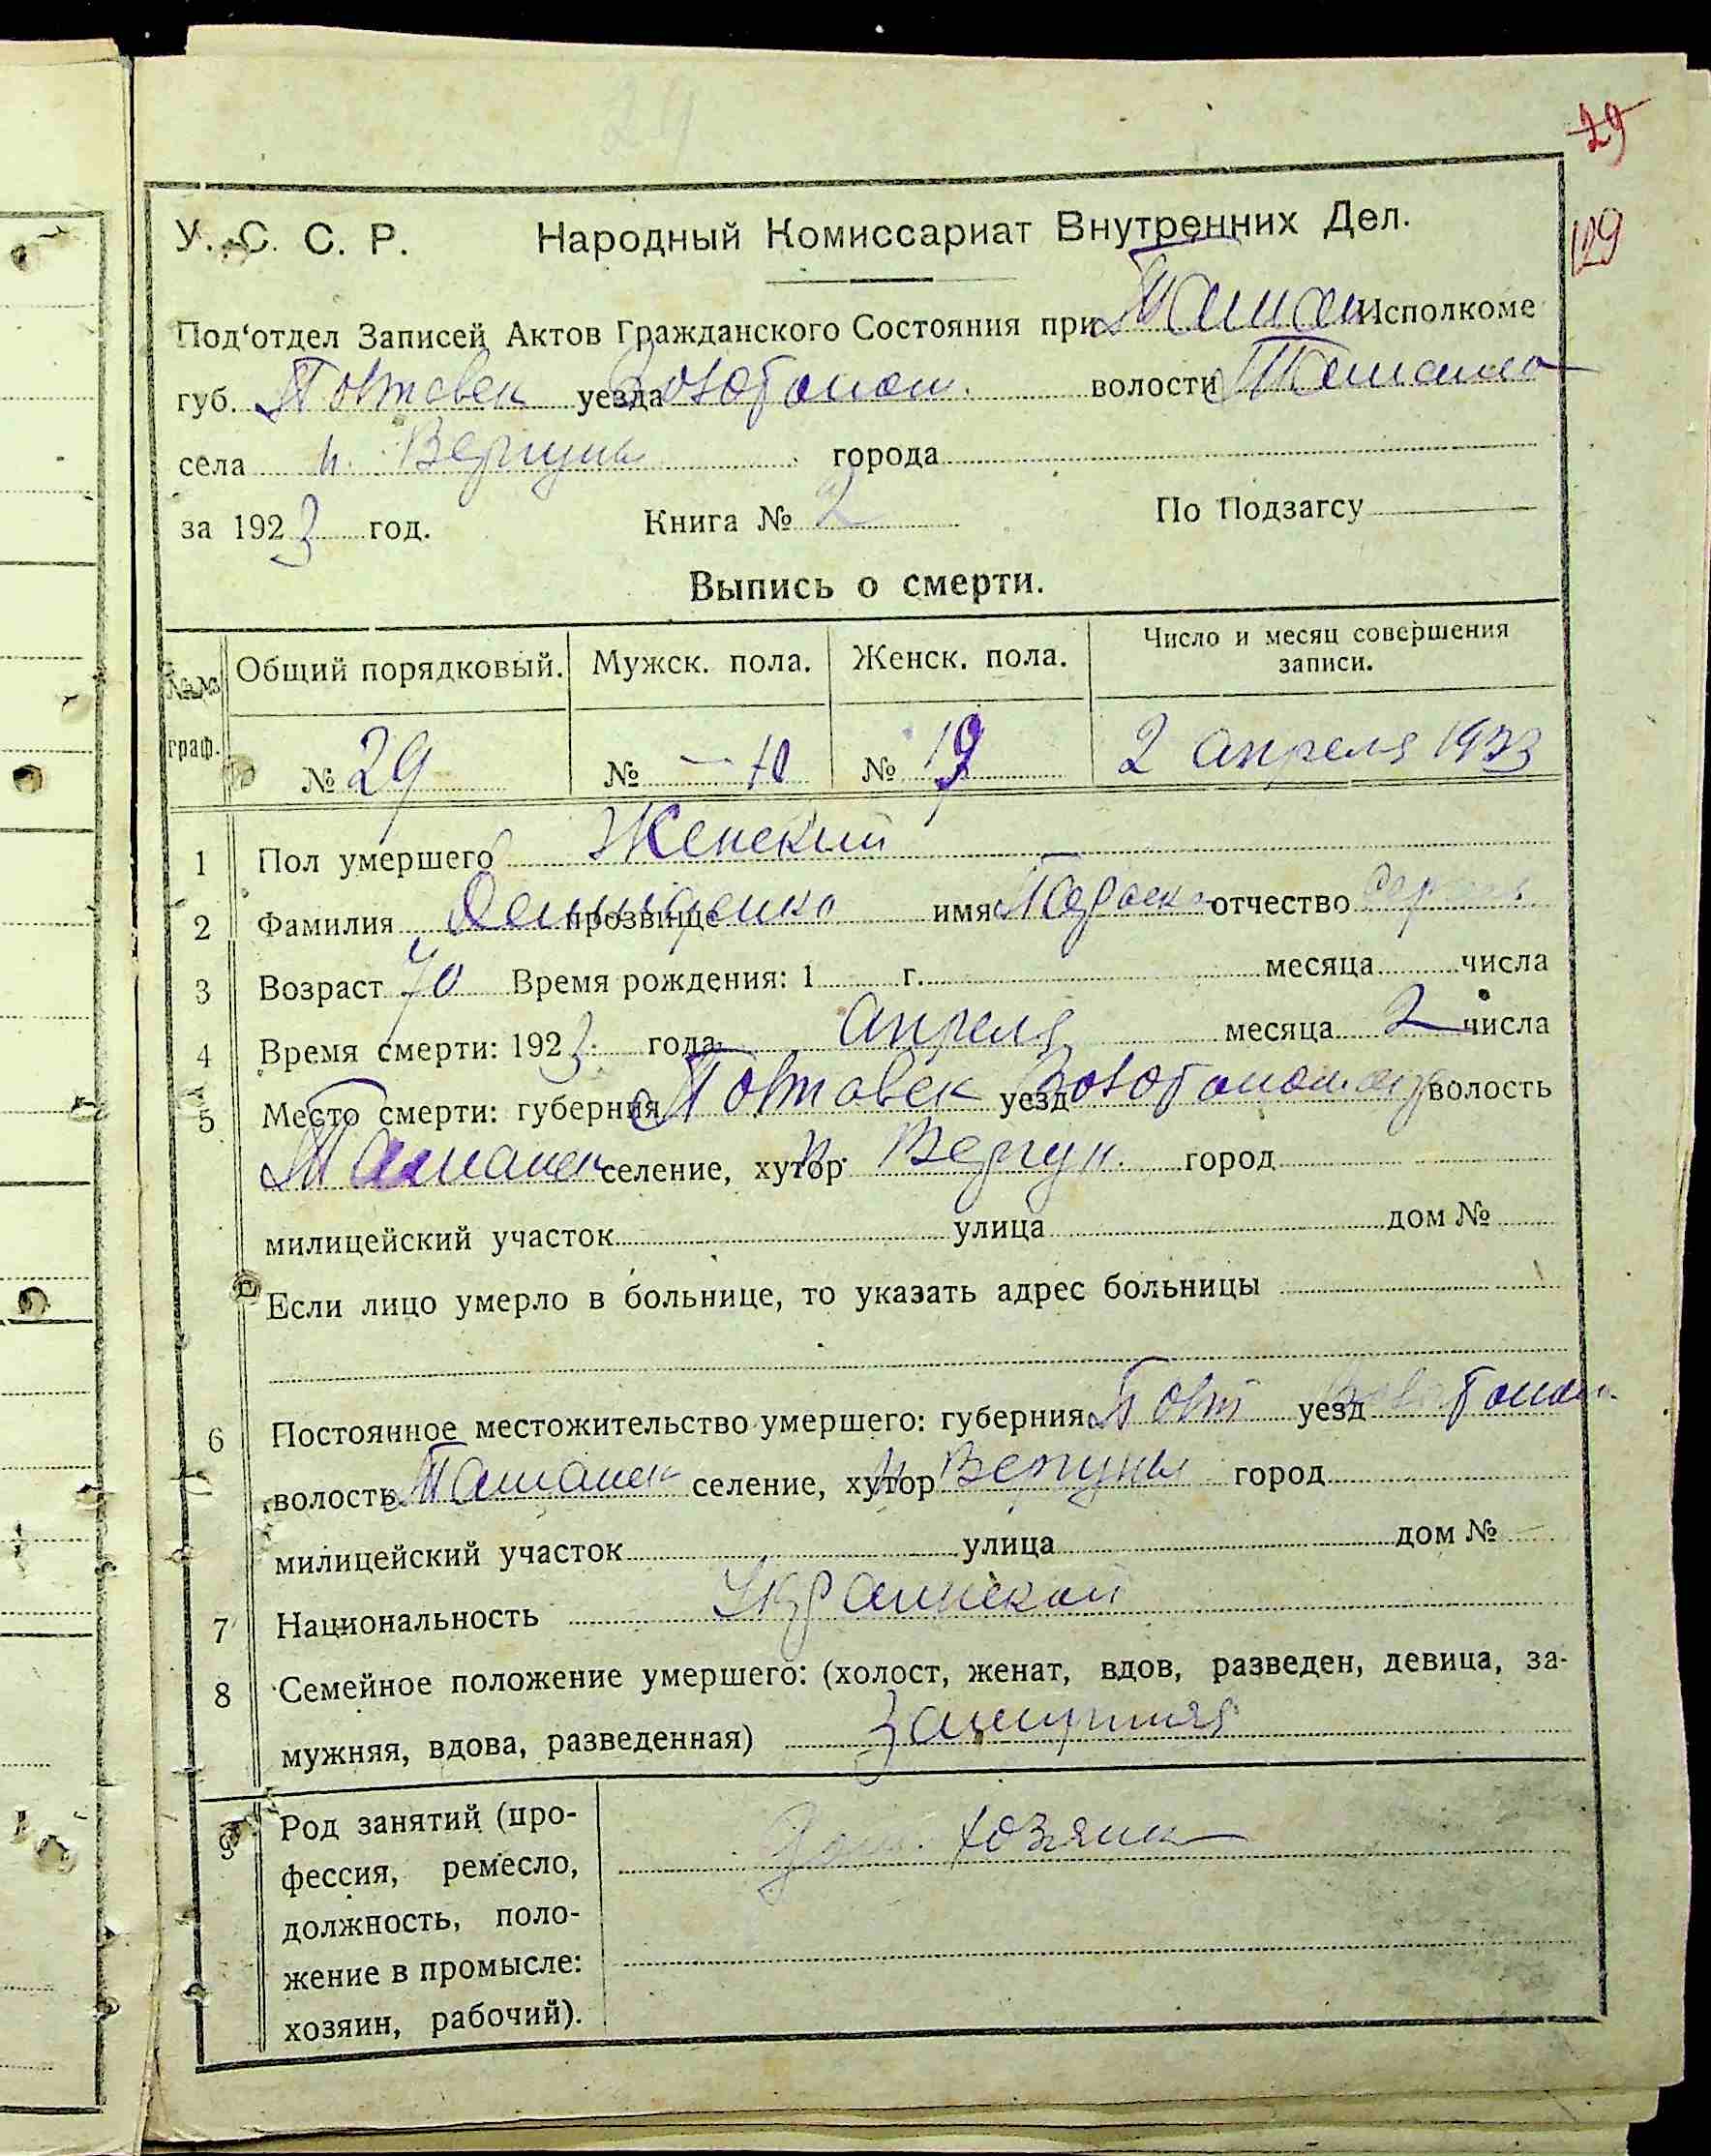 29
29
129
У. С. С. Р. Народный Комиссариат Внутренних Дел.
Под'отдел Записей Актов Гражданского Состояния при Исполкоме
губ. Полтавск уезда Золотонош. волости
села н. Вергуны города
за 1923 год. Книга № 2 По Подзагсу
Выпись о смерти.
№№ граф. Общий порядковый. Мужск. пола. Женск. пола. Число и месяц совершения записи.
№ 29 № — 10 № 19 2 апреля 1923
1 Пол умершего Женский
2 Фамилия прозвище имя отчество
3 Возраст 70 Время рождения: 1 г. месяца числа
4 Время смерти: 1923 года апреля месяца 2 числа
5 Место смерти: губерния Полтавск уезд Золотонош волость
селение, хутор н. Вергун. город
милицейский участок улица дом №
Если лицо умерло в больнице, то указать адрес больницы
6 Постоянное местожительство умершего: губерния Полт уезд Золотонош.
волость селение, хутор н Вергуны город
милицейский участок улица дом №
7 Национальность
8 Семейное положение умершего: (холост, женат, вдов, разведен, девица, за-
мужняя, вдова, разведенная) замужняя
9 Род занятий (про-
фессия, ремесло,
должность, поло-
жение в промысле:
хозяин, рабочий).
дом. хозяйка